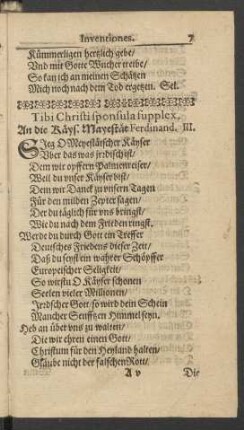 Inventiones. 7
Kümmerligen hertzlich gebe/
Vnd mit Gotte Wucher treibe/
So kan ich an meinen Schätzen
Mich noch nach dem Tod ergetzen. Sel.
Tibi Christi sponsula supplex.
An die Käys. Mayestät Ferdinand. III.
SIeg O Meyestätischer Käyser
Vber das was jrrdisch ist/
Dem wir opffern Palmenreiser/
Weil du vnser Käyser bist/
Dem wir Danck zu vnsern Tagen
Für den milden Zepter sagen/
Der du täglich für vns bringst/
Wie du nach dem Frieden ringst.
Werde du durch Gott ein Treffer
Deutsches Friedens dieser Zeit/
Daß du seyst ein wahrer Schöpffer
Europeischer Seligkeit/
So wirstu O Käyser schonen
Seelen vieler Millionen/
Jrrdscher Gott so wird dein Schein
Mancher Seufftzen Himmel seyn.
Heb an über vns zu walten/
Die wir ehren einen Gott/
Christum für den Heyland halten/
Gläube nicht der falschen Rott/
A v Die